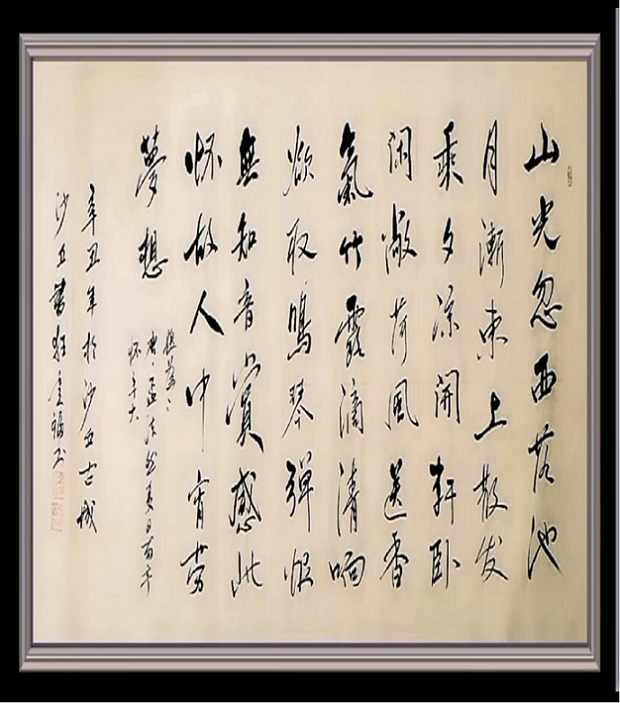 山光忽西落池
月漸东上散发
乘夕凉開軒卧
闲敞荷風送香
氣竹露滴清响
欲取鳴琴弹恨
無知音賞感此
怀故人中宵劳
夢想
孟浩然夏日南亭
怀辛大
辛丑年於沙丘古城
沙丘書狂